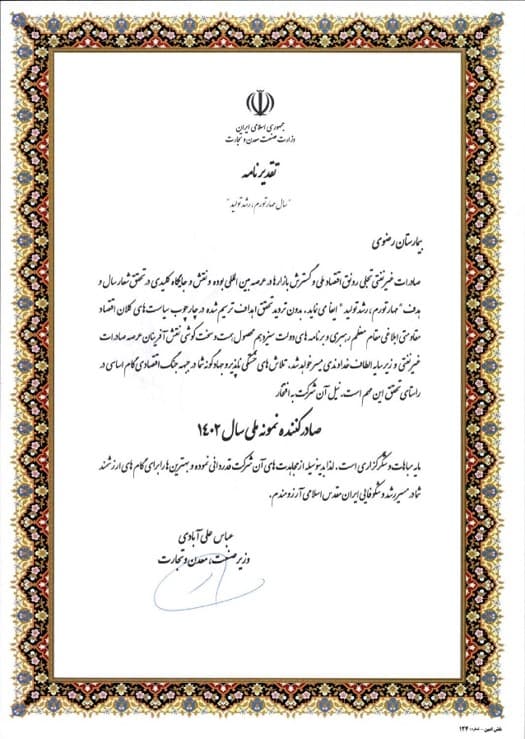 جمهوری اسلامی ایران
وزارت صنعت معدن و تجارت
تقدیرنامه
"سال مهار تورم، رشد تولید"
بیمارستان رضوی
صادرات غیرنفتی تجلی رونق اقتصاد ملی و گسترش بازارها در عرصه بین المللی بوده و نقش و جایگاه کلیدی در تحقق شعار سال و
هدف "مهار تورم، رشد تولید" ایفا می نماید، بدون تردید تحقق اهداف ترسیم شده در چارچوب سیاست های کلان اقتصاد
مقاومتی ابلاغی مقام معظم رهبری و برنامه های دولت سیزدهم محصول همت و سخت کوشی نقش آفرینان عرصه صادرات
غیرنفتی و زیر سایه الطاف خداوندی میسر خواهد شد، تلاش های خستگی ناپذیر و جهادگونه شما در جبهه جنگ اقتصادی گام اساسی در
راستای تحقق این مهم است. نیل آن شرکت به افتخار
صادرکننده نمونه ملی سال ۱۴۰۲
مایه مباهات و شکرگزاری است. لذا بدینوسیله از مجاهدت های آن شرکت قدردانی نموده و بهترین ها را برای گام های ارزشمند
شما در مسیر رشد و شکوفایی ایران مقدس اسلامی آرزومندم.
عباس علی آبادی
وزیر صنعت، معدن و تجارت